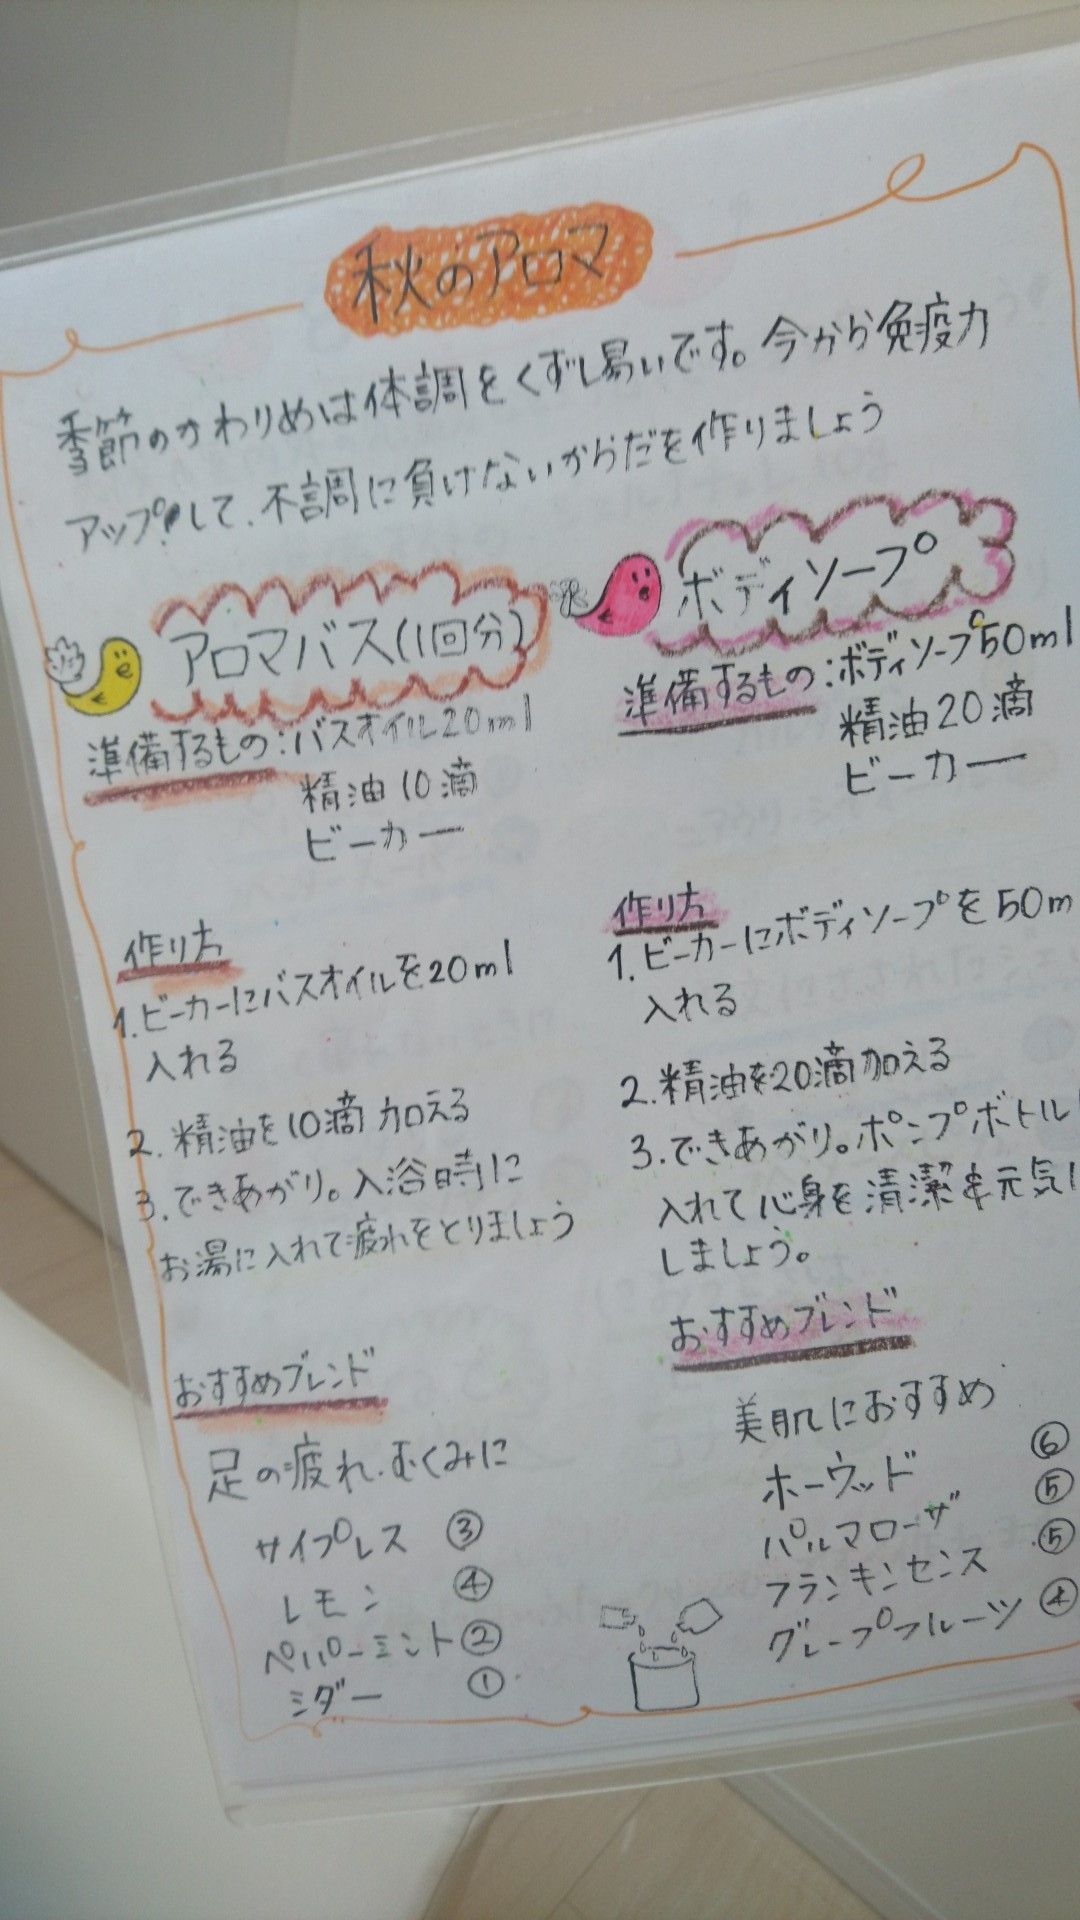 秋のアロマ
季節のかわりめは体調をくずし易いです。今から免疫力
アップして、不調に負けないからだを作りましょう
アロマバス(1回分)
準備するもの:バスオイル20ml
精油10滴
ビーカー
作り方
1.ビーカーにバスオイルを20ml
入れる
2.精油を10滴加える
3.できあがり。入浴時に
お湯に入れて疲れをとりましょう
おすすめブレンド
足の疲れ、むくみに
サイプレス ③
レモン ④
ペパーミント②
ミダー ①
ボディソープ
準備するもの:ボディソープ50ml
精油20滴
ビーカー
作り方
1.ビーカーにボディソープを50m
入れる
2.精油を20滴加える
3.できあがり。ポンプボトル
入れて心身を清潔&元気に
しましょう。
おすすめブレンド
美肌におすすめ
ホーウッド ⑥
パルマローザ ⑤
フランキンセンス ⑤
グレープフルーツ ④